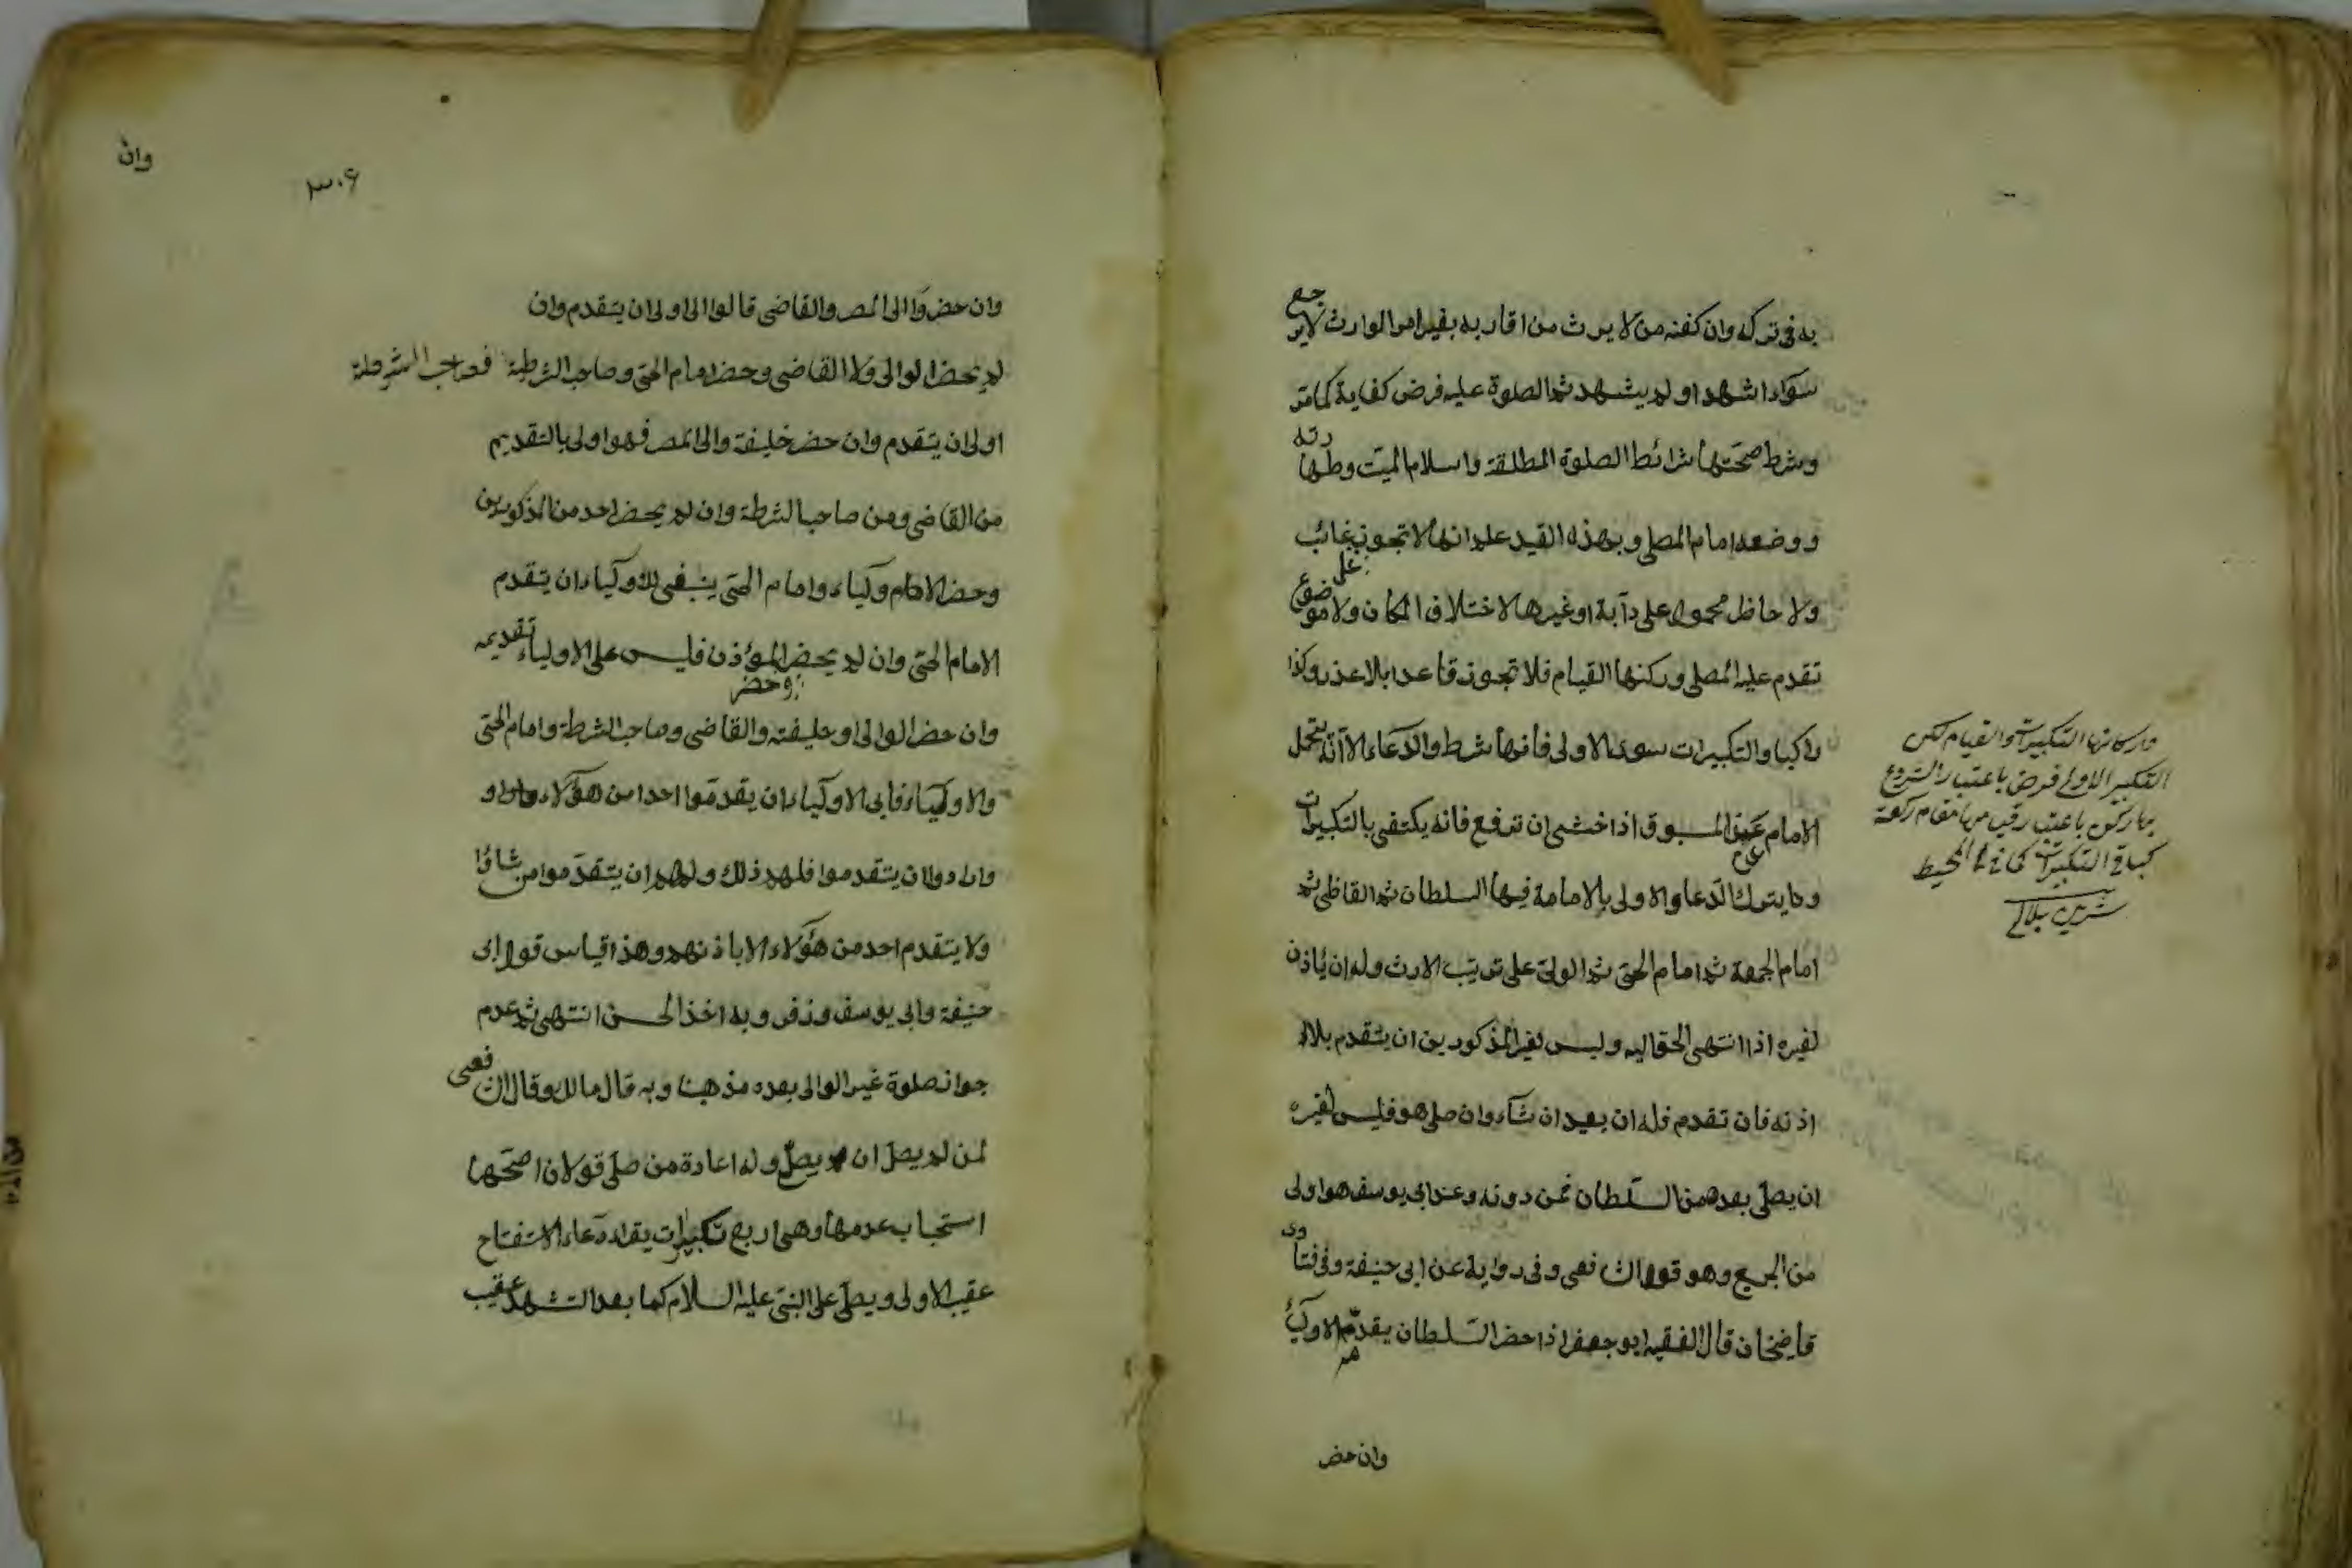 به فى تركه وان كفنه من لا يرث من اقاربه بغير امر الوارث لا يرجع
سوآء اشهد او لم يشهد ثم الصلوة عليه فرض كفاية كما مرّ
وشرط صحّتها شرائط الصلوة المطلقة واسلام الميّت وطهارته
ووضعه امام المصلى وبهذه القيد علم انها لا تجوز على غائب
ولا حاظر محمول على دآبة او غيرها لاختلاف المكان ولا موضوع
تقدم عليه المصلى وركنها القيام فلا تجوز قاعدا بلا عذر وكذا
راكبا والتكبيرات سوى الاولى فانها شرط والدعاء الا انّه يتحمل
الامام عن المسبوق اذا خشى ان ترفع فانه يكتفى بالتكبيرات
ويترك الدّعا والاولى بالامامة فيها السلطان ثم القاظى ثم
امام الجمعة ثم امام الحىّ ثم الولىّ على ترتيب الارث وله ان يأذن
لغيره اذا انتهى الحق اليه وليس لغير المذكورين ان يتقدم بلا
اذنه فان تقدم فله ان يعيد ان شآء وان صلى هو فليس لغيره
ان يصلّى بعده من السّلطان فمن دونه وعند ابى يوسف هو اولى
من الجميع وهو قول الشافعى وفى رواية عن ابى حنيفة وفى فتاوى
قاضيخان قال الفقيه ابو جعفر اذا حضر السّلطان يقدّمه الاوليآء
وان حضر
واركانها التكبيرات والقيام لكن
التكبير الاولى فرض باعتبار الشروع
بها ركن باعتبار قيامها مقام ركعة
كباقى التكبيرات كما فى المحيط
شرنبلالى
وان
٣٠٦
وان حضر والى المصر والقاضى قالوا الى اولى ان يتقدم وان
لم يحضر الوالى ولا القاضى وحضر امام الحىّ وصاحب الشرطة فصاحب الشرطة
اولى ان يتقدم وان حضر خليفة والى المصر فهو اولى بالتقديم
من القاضى ومن صاحب الشرطة وان لم يحضر احد من المذكورين
وحضر الاولياء وامام الحىّ ينبغى للاولياء ان يتقدم
الامام الحىّ وان لم يحضر المؤذن فليس على الاولياء تقديمه
وان حضر الوالى او خليفته والقاضى وصاحب الشرطة وامام الحىّ
والاولياء فابى الاولياء ان يقدمّوا احدا من هؤلآء
وارادوا ان يتقدموا فلهم ذلك ولهم ان يتقدّموا من شاؤا
ولا يتقدم احد من هؤلاء الا باذنهم وهذا قياس قول ابى
حنيفة وابى يوسف وزفر وبه اخذ الحسن انتهى ثم عدم
جواز صلوة غير الوالى بعده مذهبنا وبه قال مالك وقال الشافعى
لمن لم يصل ان يصلّ وله اعادة من صلّى قولان اصحّها
استحباب عدمها وهى اربع تكبيرات يقراء دعاء الاستفتاح
عقيب الاولى ويصلّى على النبىّ عليه السلام كما بعد التشهد عقيب